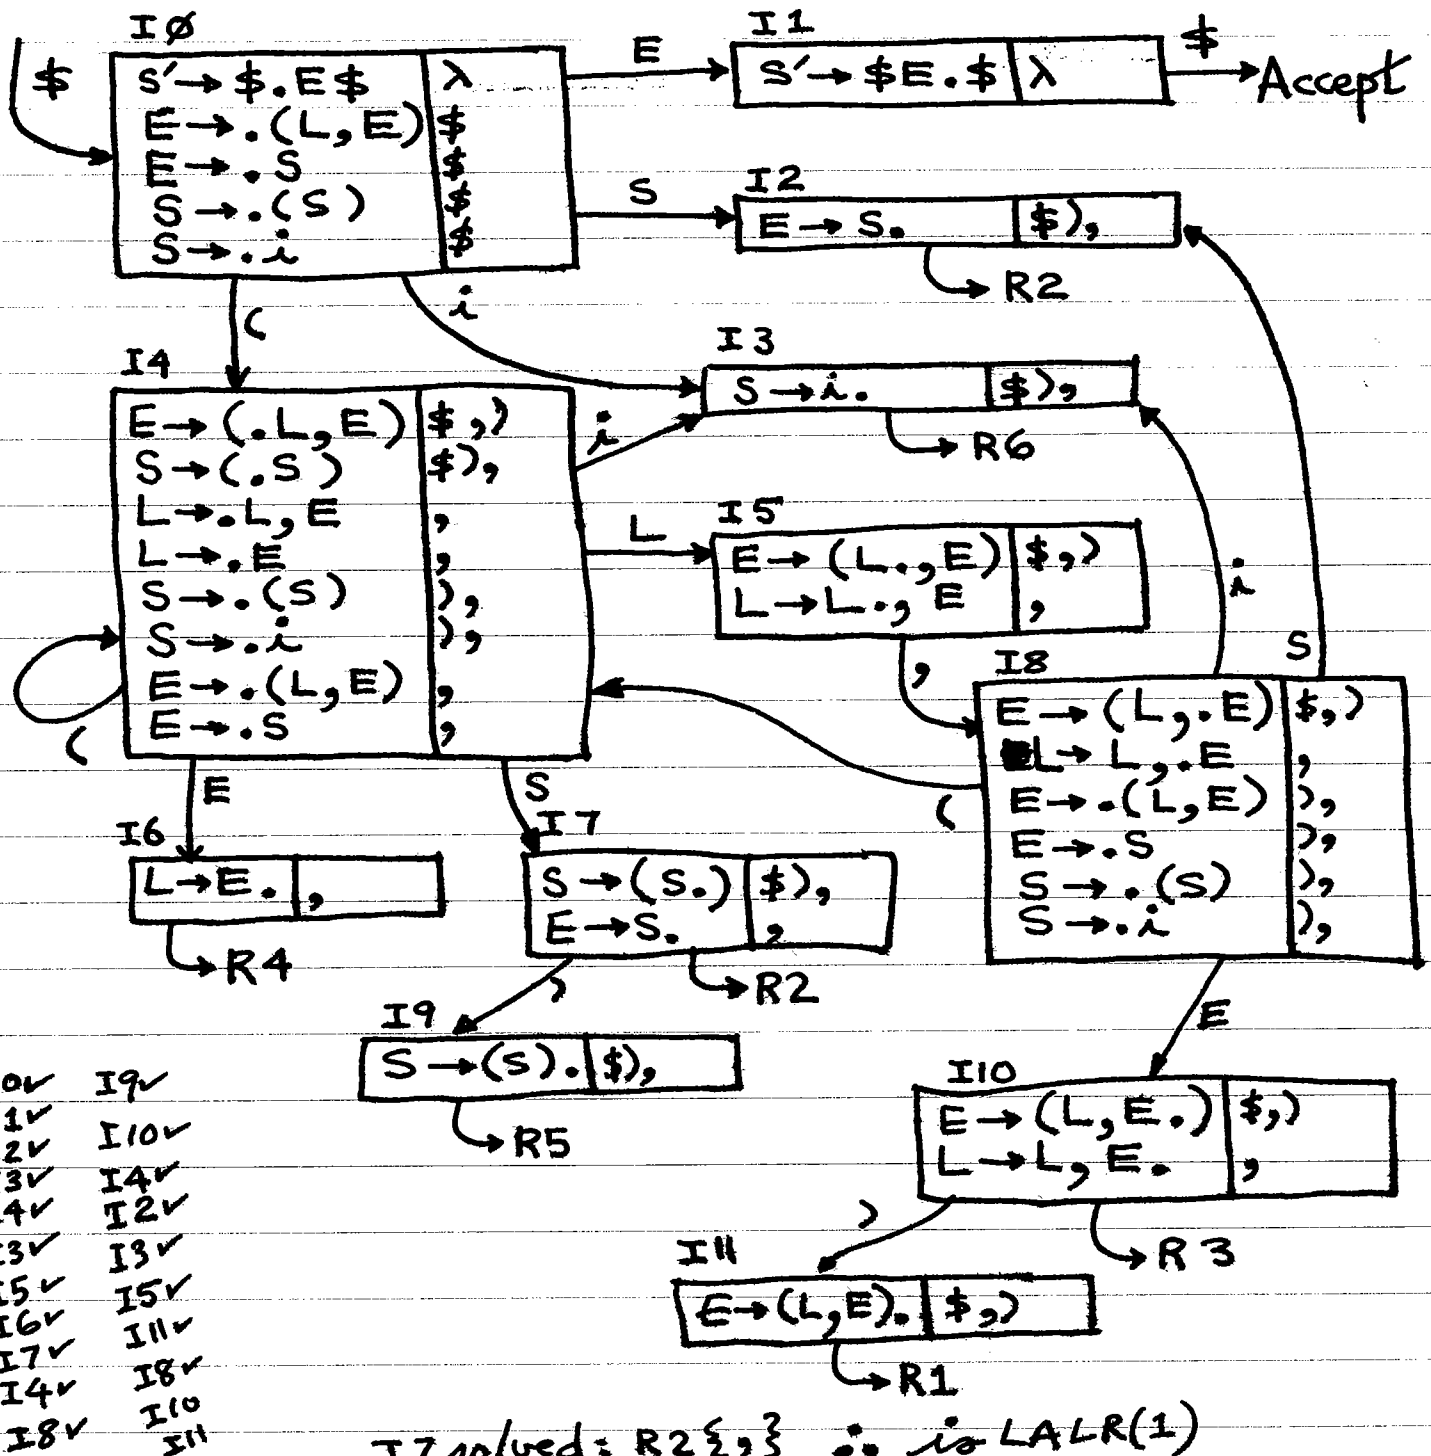 IØ
$
S′→$.E$ λ
E→.(L,E) $
E→.S $
S→.(S) $
S→.i $
E
I1
S′→$E.$ λ
$
Accept
S
I2
E→S. $),
R2
(
i
I3
S→i. $),
R6
I4
E→(.L,E) $,)
S→(.S) $),
L→.L,E ,
L→.E ,
S→.(S) ),
S→.i ),
E→.(L,E) ,
E→.S ,
(
i
L
I5
E→(L.,E) $,)
L→L.,E ,
,
i
S
I8
E→(L,.E) $,)
L→L,.E ,
E→.(L,E) ),
E→.S ),
S→.(S) ),
S→.i ),
(
E
I6
L→E. ,
R4
S
I7
S→(S.) $),
E→S. ,
R2
)
I9
S→(S). $),
R5
E
I10
E→(L,E.) $,)
L→L,E. ,
R3
)
I11
E→(L,E). $,)
R1
0✓ I9✓
1✓ I10✓
2✓ I4✓
3✓ I2✓
4✓ I3✓
I3✓ I5✓
I5✓ I11✓
I6✓ I8✓
I7✓ I10
I4✓ I11
I8✓
I7 solved: R2{,} ∴ is LALR(1)